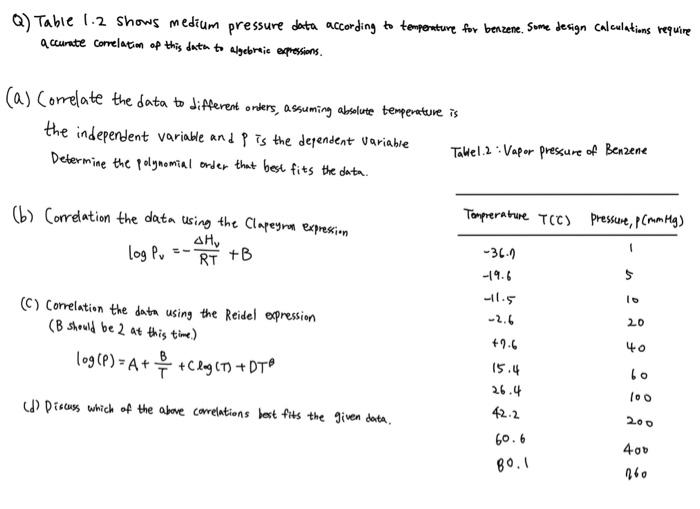 Q) Table 1.2 shows medium pressure data according to temperature for benzene. Some design calculations require
accurate correlation of this data to algebraic expressions.
(a) Correlate the data to different orders, assuming absolute temperature is
the independent variable and P is the dependent variable
Determine the polynomial order that best fits the data.
(b) Correlation the data using the Clapeyron expression
log Pv = - ΔHv/RT + B
(C) Correlation the data using the Reidel expression
(B should be 2 at this time.)
log(P) = A + B/T + C log(T) + DT^β
(d) Discuss which of the above correlations best fits the given data.
Table 1.2 : Vapor pressure of Benzene
Temprerature T(C) pressure, P(mmHg)
-36.7 1
-19.6 5
-11.5 10
-2.6 20
+7.6 40
15.4 60
26.4 100
42.2 200
60.6 400
80.1 760